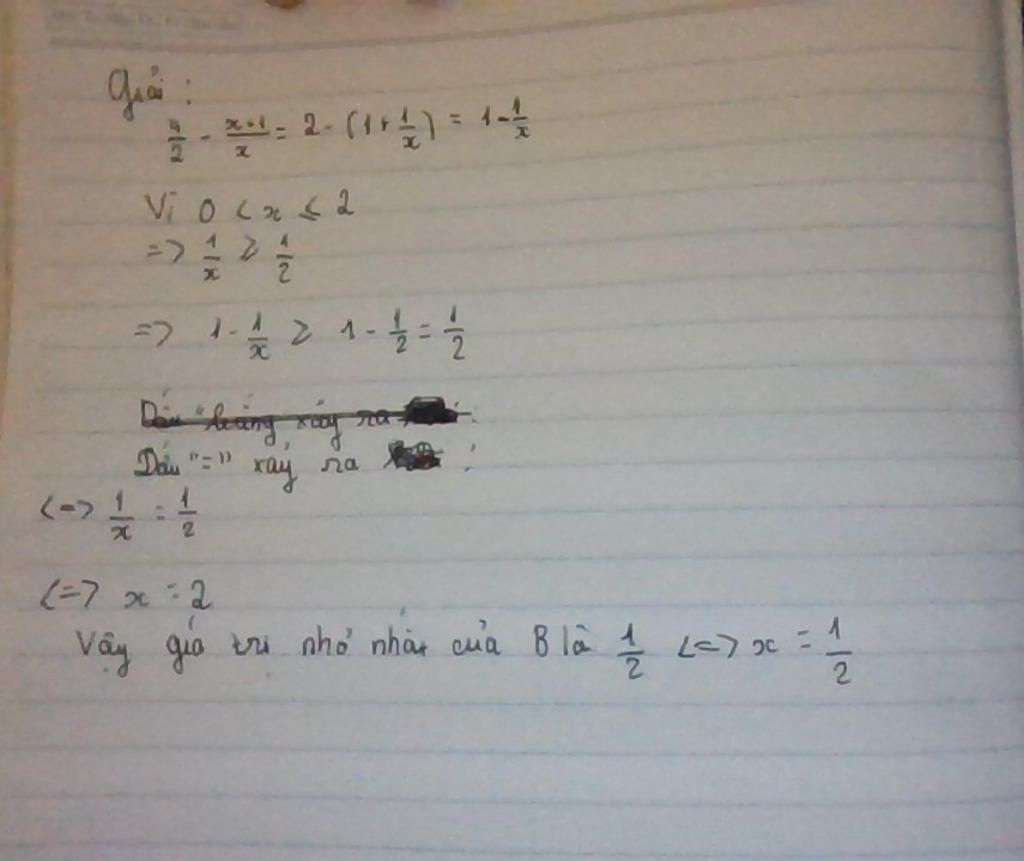 Giải :
4/2 - x+1/x = 2 - (1 + 1/x) = 1 - 1/x
Vì 0 < x ≤ 2
=> 1/x ≥ 1/2
=> 1 - 1/x ≥ 1 - 1/2 = 1/2
Dấu "bằng xảy ra :
Dấu "=" xảy ra :
<=> 1/x = 1/2
<=> x = 2
Vậy giá trị nhỏ nhất của B là 1/2 <=> x = 1/2